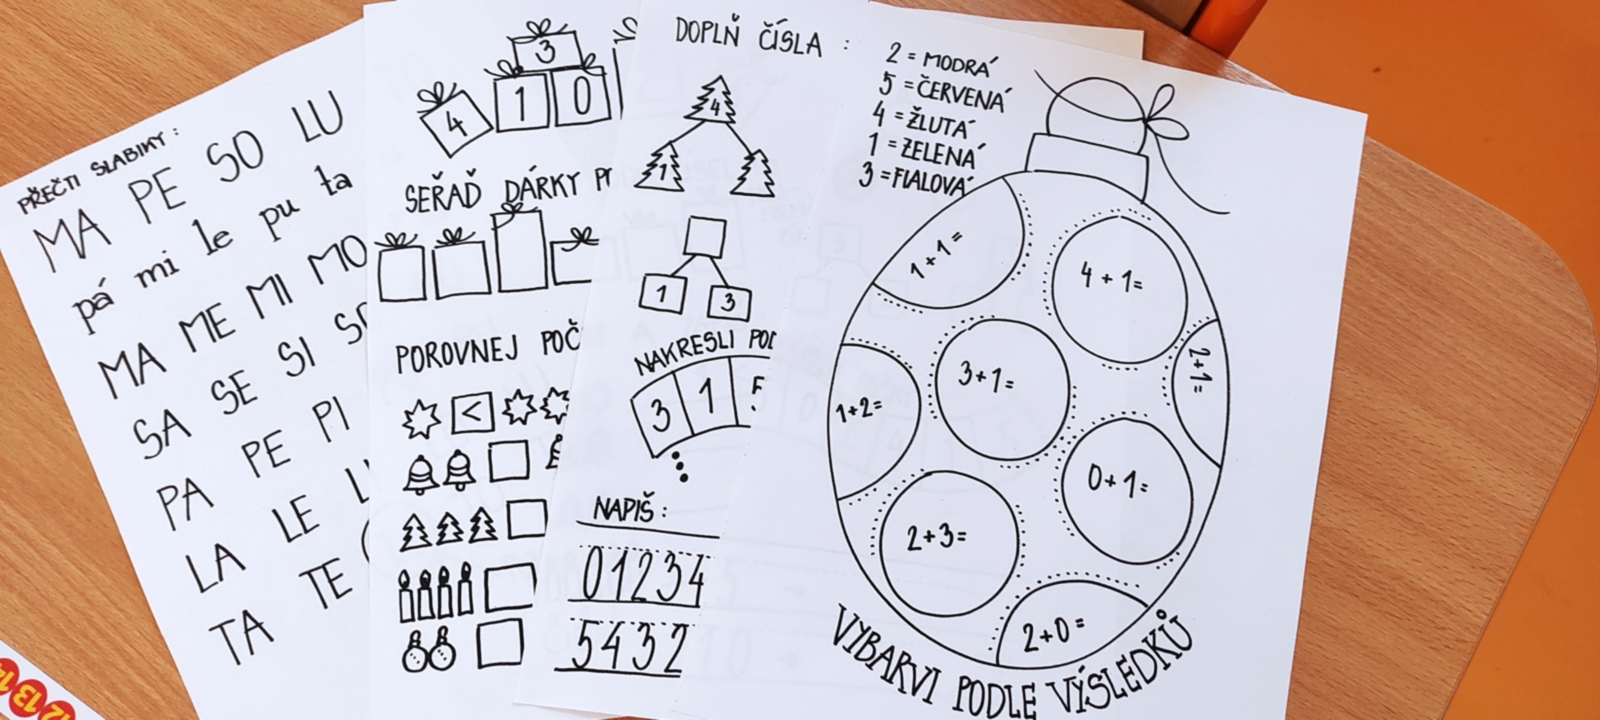 PŘEČTI SLABIKY:
MA PE SO LU
pá mi le pu ta
MA ME MI MO
SA SE SI
PA PE PI
LA LE
TA TE
3
4 1 0
SEŘAĎ DÁRKY
POROVNEJ
<
DOPLŇ ČÍSLA :
4
1
1 3
NAKRESLI
3 1
NAPIŠ:
01234
5432
2 = MODRÁ
5 = ČERVENÁ
4 = ŽLUTÁ
1 = ZELENÁ
3 = FIALOVÁ
1+1=
4+1=
2+1=
3+1=
1+2=
0+1=
2+3=
2+0=
VYBARVI PODLE VÝSLEDKŮ
12 13 14